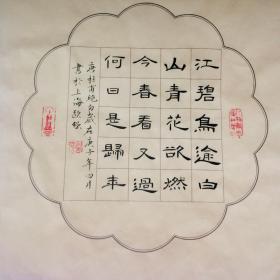 江碧鳥逾白
山青花欲燃
今春看又過
何日是歸年
唐杜甫絕句歲在庚子年四月
書於上海